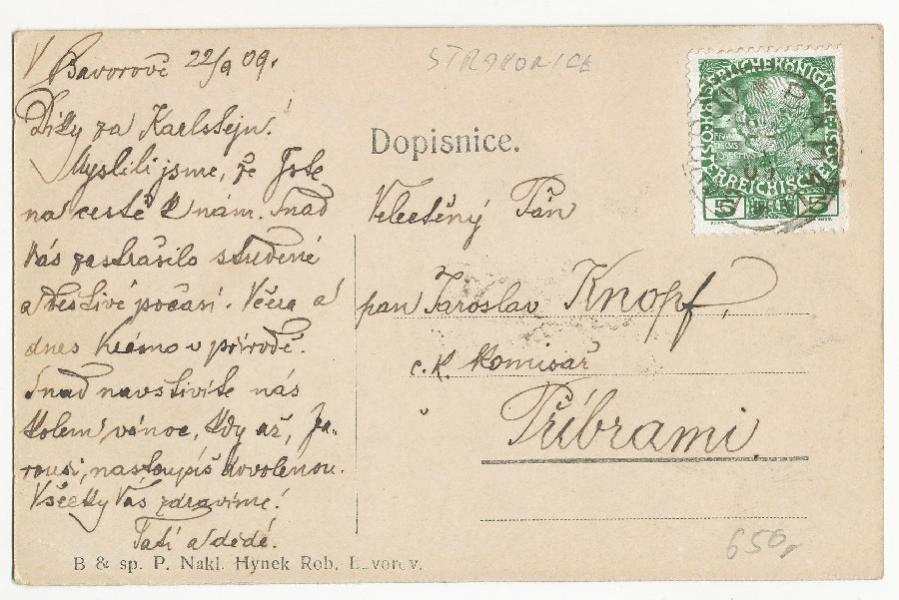 V Bavorově 22/9 09.
Díky za Karlstejn!
Myslili jsme, že Jste
na cestě k nám. Snad
Vás zastrašilo studené
a deštivé počasí. Včera a
dnes v přírodě.
Snad navštívíte nás
kolem vánoc, kdy až, Ja-
rousi, nastoupíš dovolenou.
Všecky Vás zdravíme!
Tatí a dědé.
B & sp. P. Nakl. Hynek Rob.
STRAKONICE
Dopisnice.
Velectěný Pán
pan Jaroslav Knopf,
c. K. Komisař
v
Příbrami
650,-
5 HELLER 5